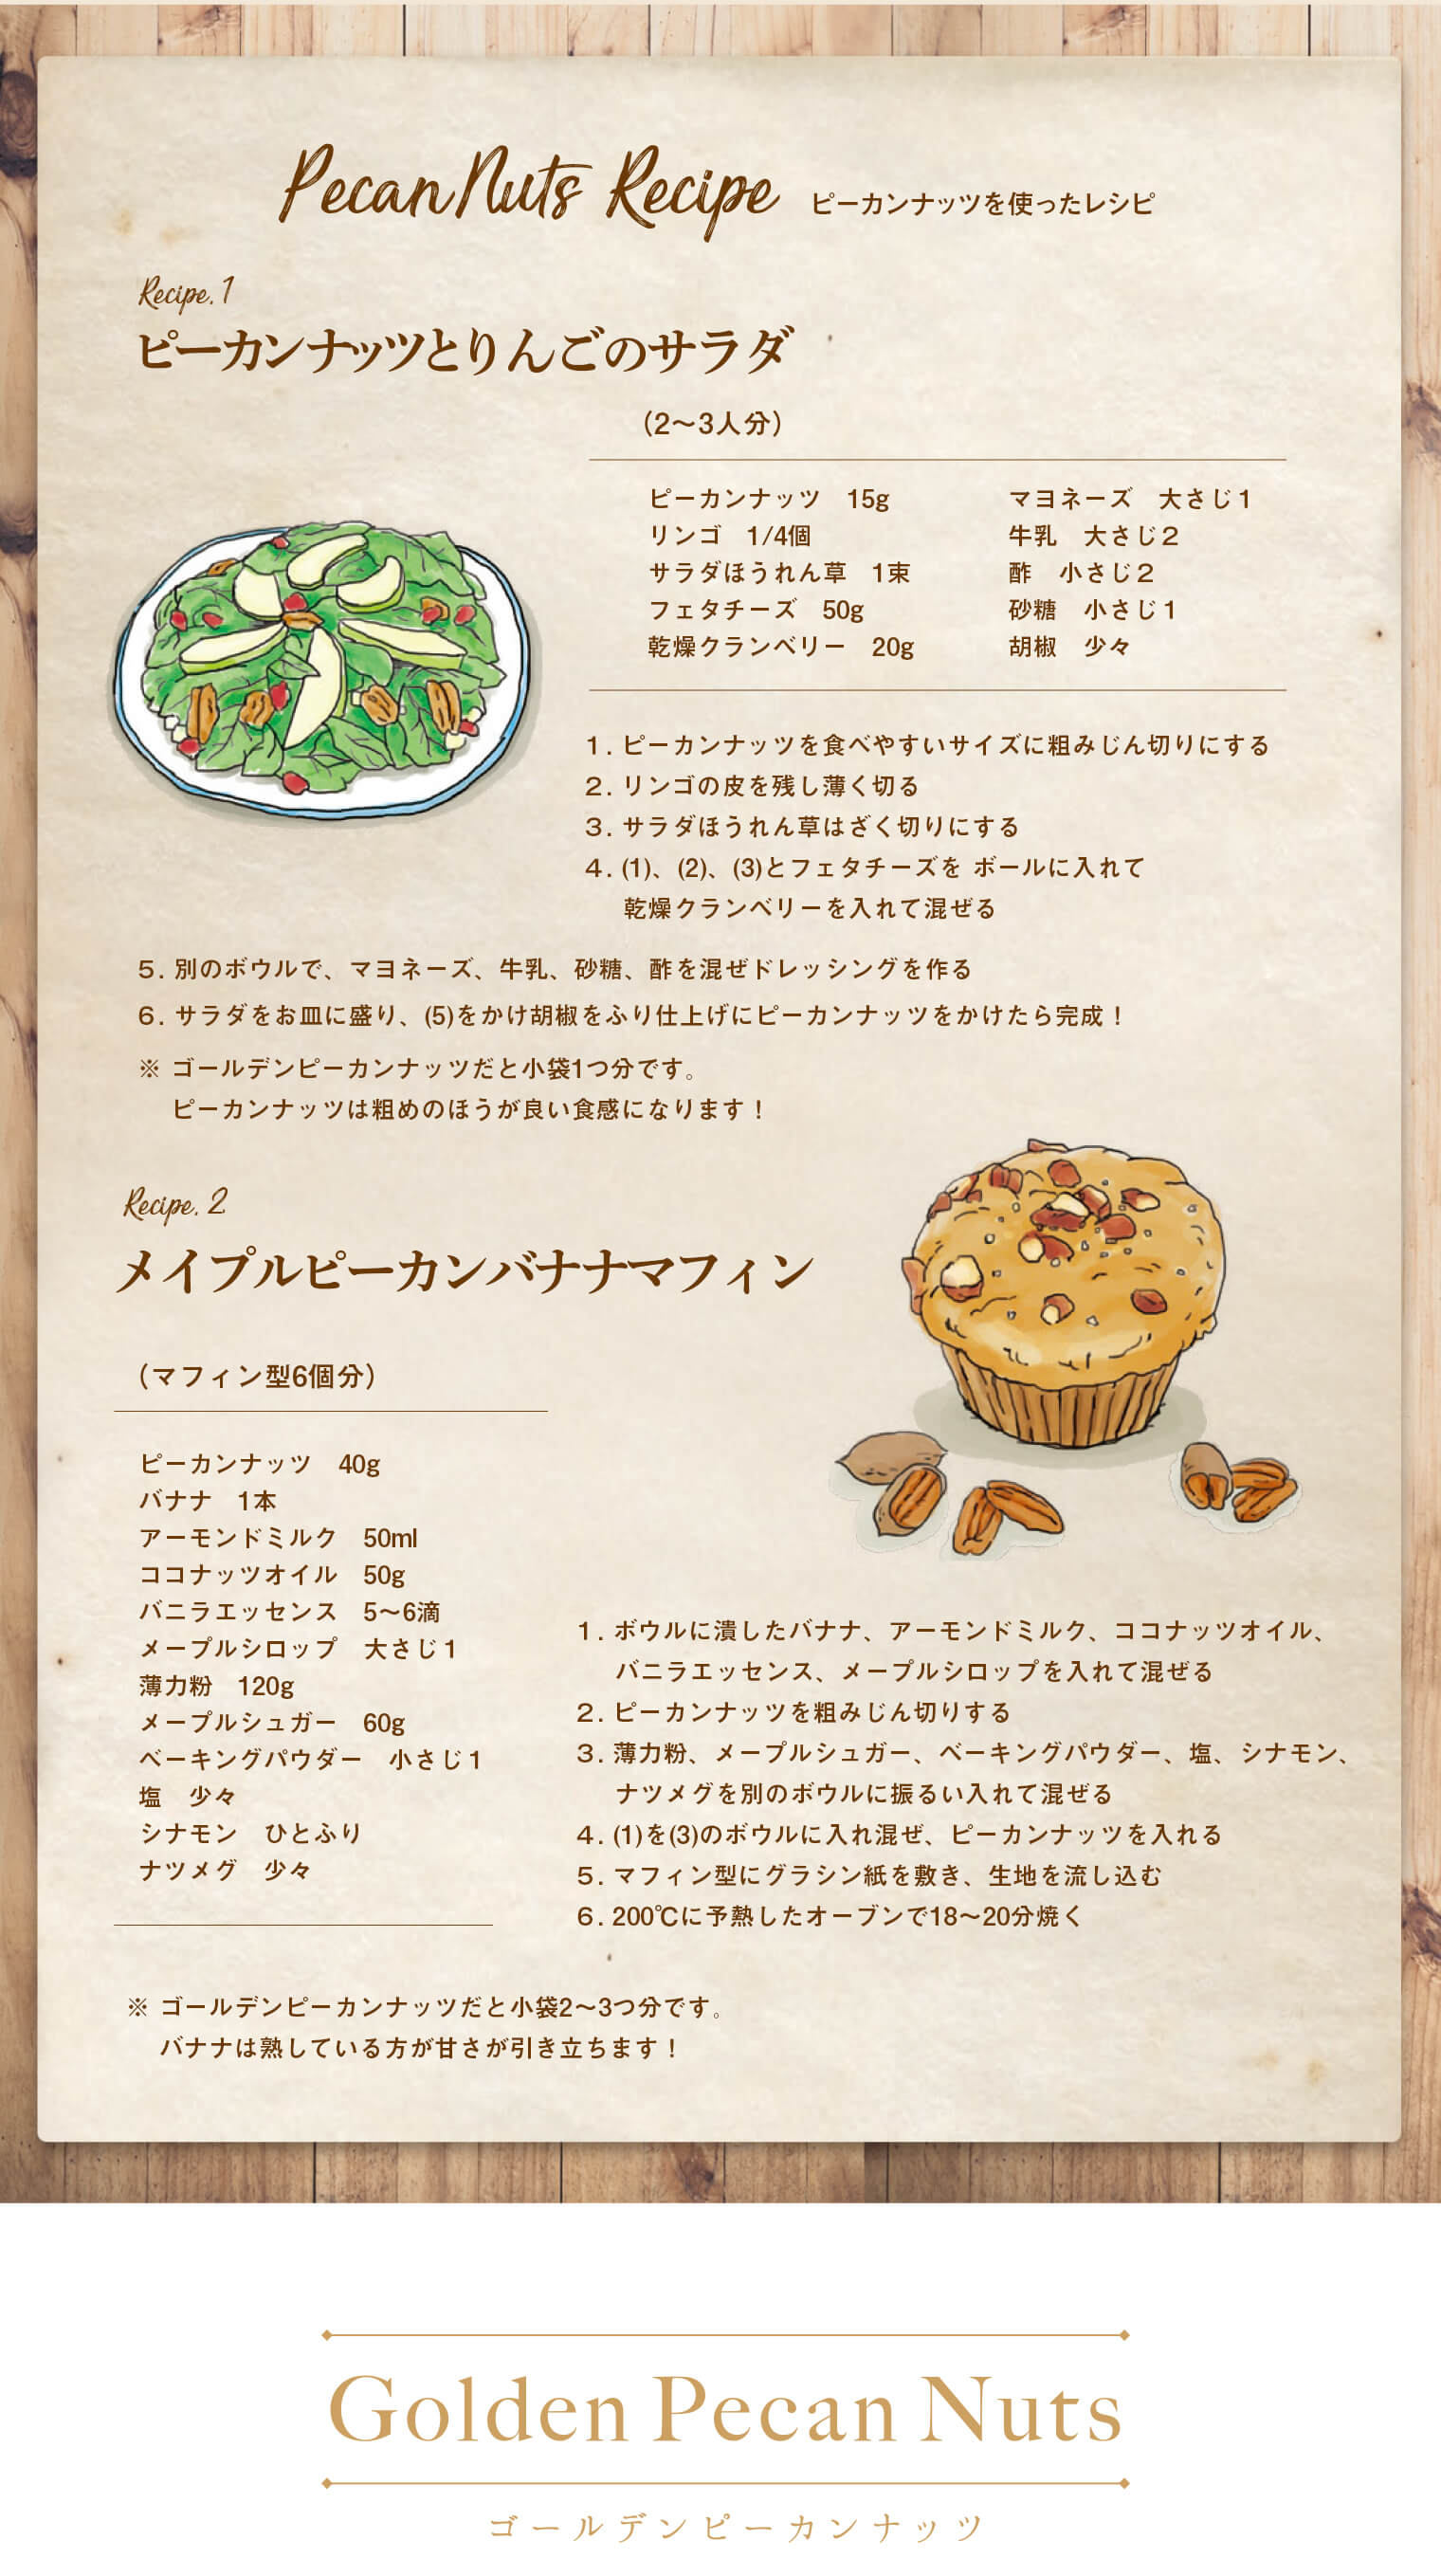 Pecan Nuts Recipe ピーカンナッツを使ったレシピ
Recipe.1
ピーカンナッツとりんごのサラダ
(2〜3人分)
ピーカンナッツ　15g
リンゴ　1/4個
サラダほうれん草　1束
フェタチーズ　50g
乾燥クランベリー　20g
マヨネーズ　大さじ1
牛乳　大さじ2
酢　小さじ2
砂糖　小さじ1
胡椒　少々
1. ピーカンナッツを食べやすいサイズに粗みじん切りにする
2. リンゴの皮を残し薄く切る
3. サラダほうれん草はざく切りにする
4. (1)、(2)、(3)とフェタチーズを ボールに入れて
乾燥クランベリーを入れて混ぜる
5. 別のボウルで、マヨネーズ、牛乳、砂糖、酢を混ぜドレッシングを作る
6. サラダをお皿に盛り、(5)をかけ胡椒をふり仕上げにピーカンナッツをかけたら完成！
※ ゴールデンピーカンナッツだと小袋1つ分です。
ピーカンナッツは粗めのほうが良い食感になります！
Recipe. 2
メイプルピーカンバナナマフィン
(マフィン型6個分)
ピーカンナッツ　40g
バナナ　1本
アーモンドミルク　50ml
ココナッツオイル　50g
バニラエッセンス　5〜6滴
メープルシロップ　大さじ1
薄力粉　120g
メープルシュガー　60g
ベーキングパウダー　小さじ1
塩　少々
シナモン　ひとふり
ナツメグ　少々
1. ボウルに潰したバナナ、アーモンドミルク、ココナッツオイル、
バニラエッセンス、メープルシロップを入れて混ぜる
2. ピーカンナッツを粗みじん切りする
3. 薄力粉、メープルシュガー、ベーキングパウダー、塩、シナモン、
ナツメグを別のボウルに振るい入れて混ぜる
4. (1)を(3)のボウルに入れ混ぜ、ピーカンナッツを入れる
5. マフィン型にグラシン紙を敷き、生地を流し込む
6. 200℃に予熱したオーブンで18〜20分焼く
※ ゴールデンピーカンナッツだと小袋2〜3つ分です。
バナナは熟している方が甘さが引き立ちます！
Golden Pecan Nuts
ゴールデンピーカンナッツ